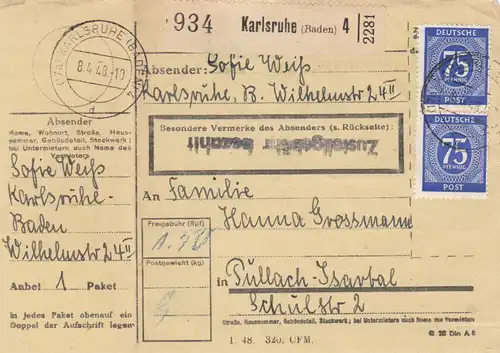 934 Karlsruhe (Baden) 4 2281
DEUTSCHE
75
POST
DEUTSCHE
75
POST
KARLSRUHE (BADEN)
8.4.48.-10
d
Absender: Sofie Weiß
Karlsruhe, B. Wilhelmstr 24 II
Besondere Vermerke des Absenders (s. Rückseite):
Zustellgebühr bezahlt
Absender
Name, Wohnort, Straße, Haus-
nummer, Gebäudeteil, Stockwerk;
bei Untermietern auch Name des
Vermieters
Sofie Weiß
Karlsruhe-
Baden
Wilhelmstr 24 II
Anbei 1 Paket
in jedes Paket obenauf ein
Doppel der Aufschrift legen
An Familie
Hanna Grossmann
Freigebühr (Rpf)
Postgewicht (kg)
in Pullach-Isartal
Schulstr 2
Straße, Hausnummer, Gebäudeteil, Stockwerk; bei Untermietern auch Name des Vermieters
1. 48. 320. CFM.
Din A 6